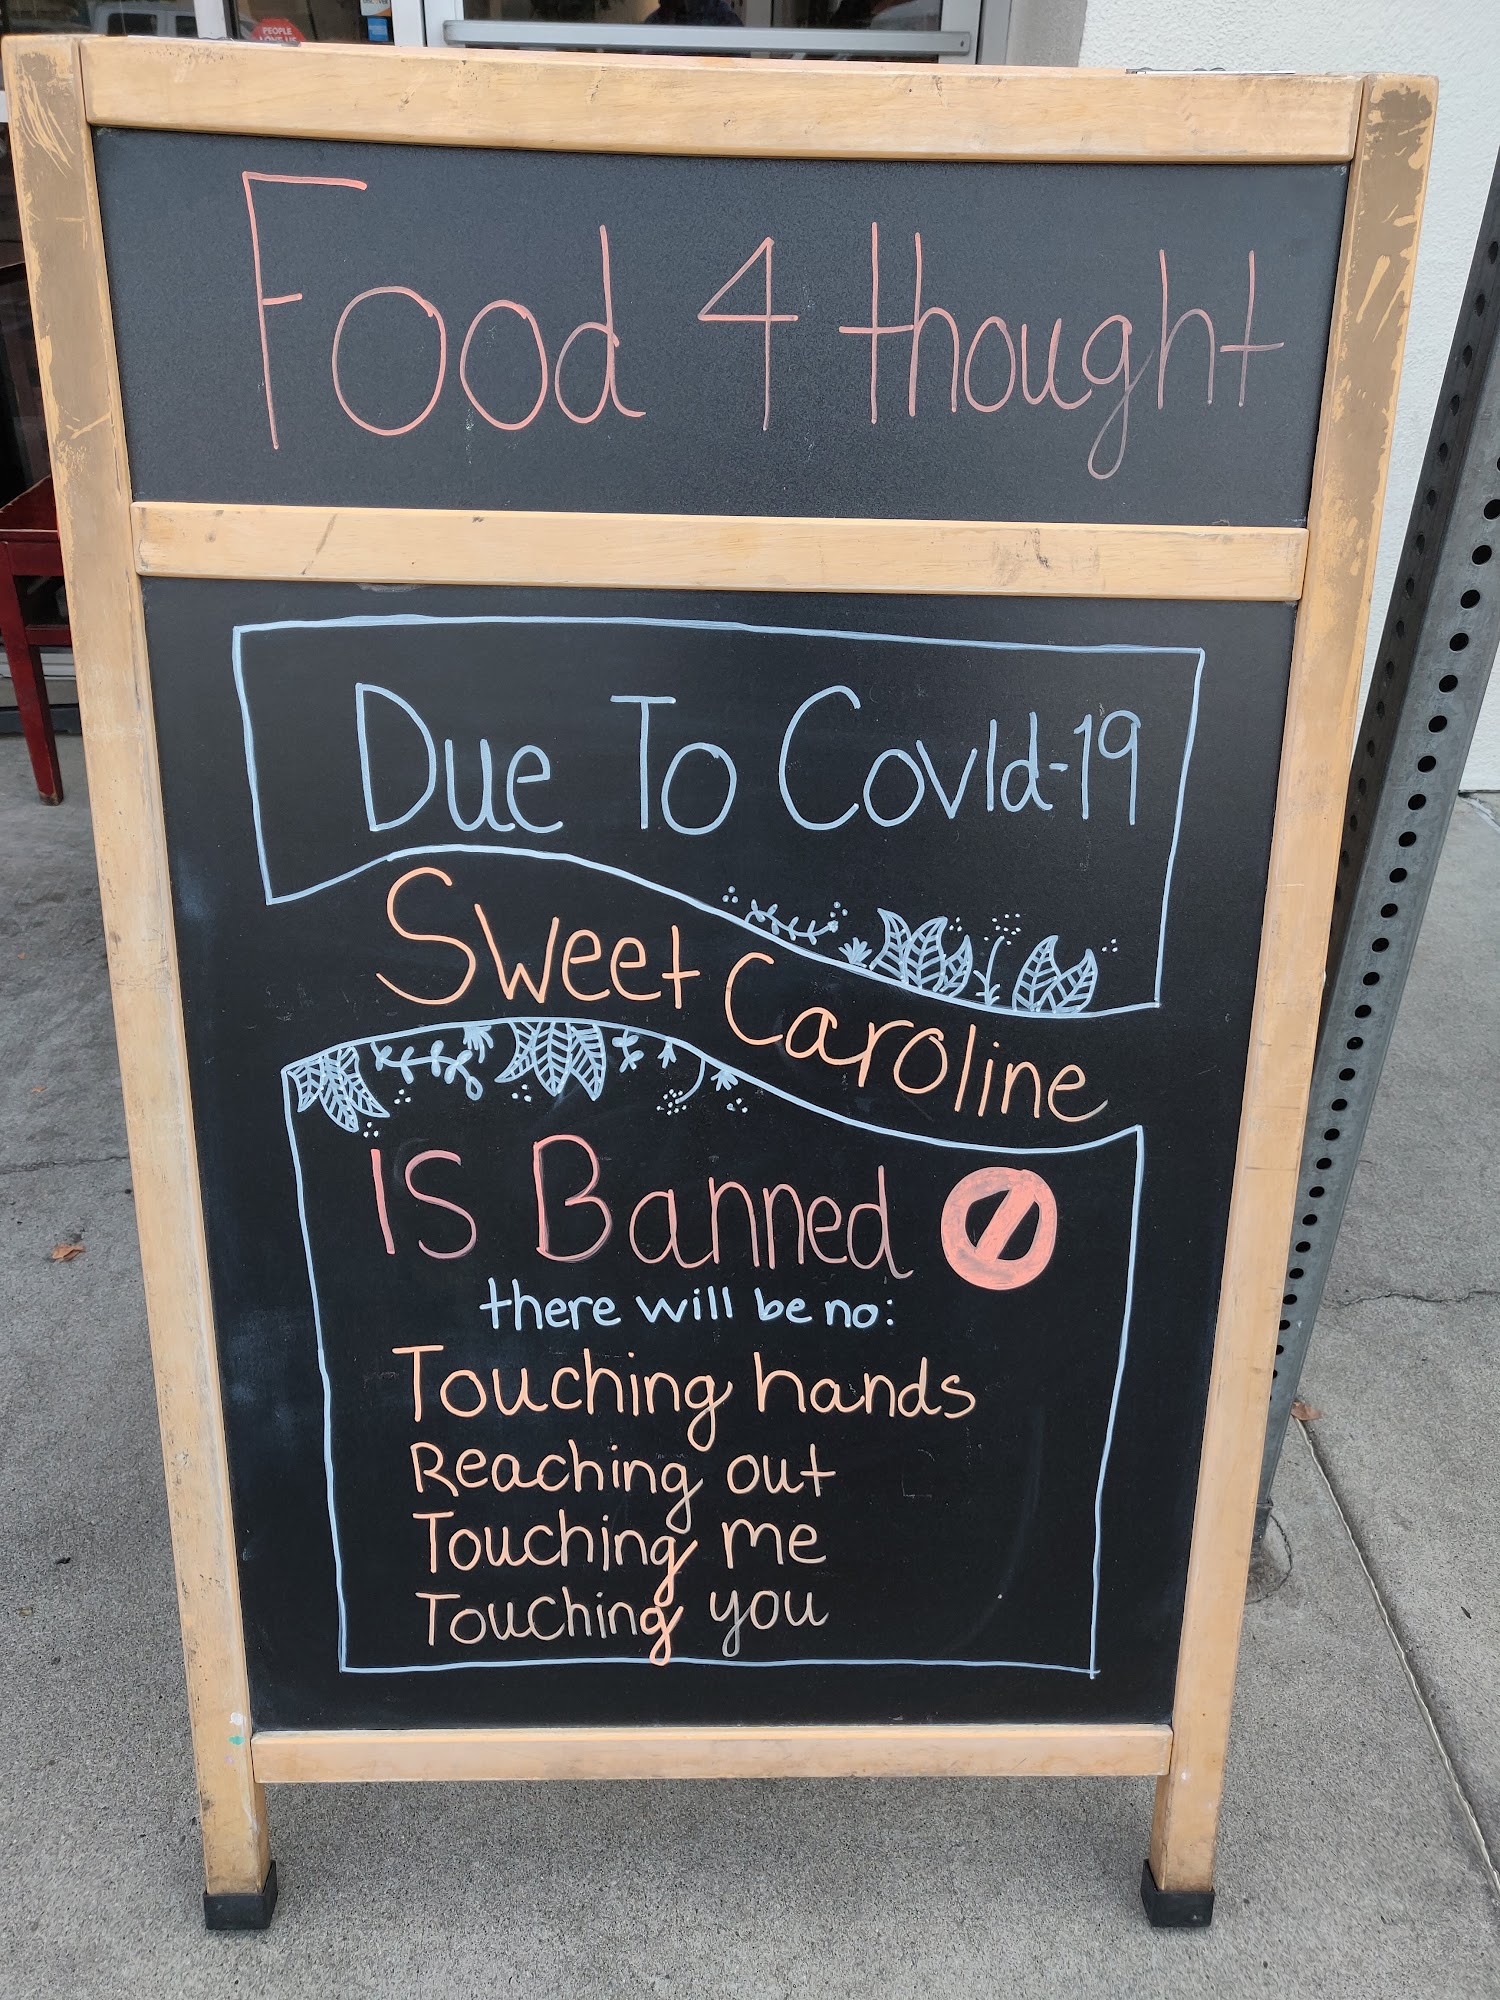 PEOPLE
LOVE US
Food 4 thought
Due To CovId-19
Sweet Caroline
IS Banned
there will be no:
Touching hands
Reaching out
Touching me
Touching you